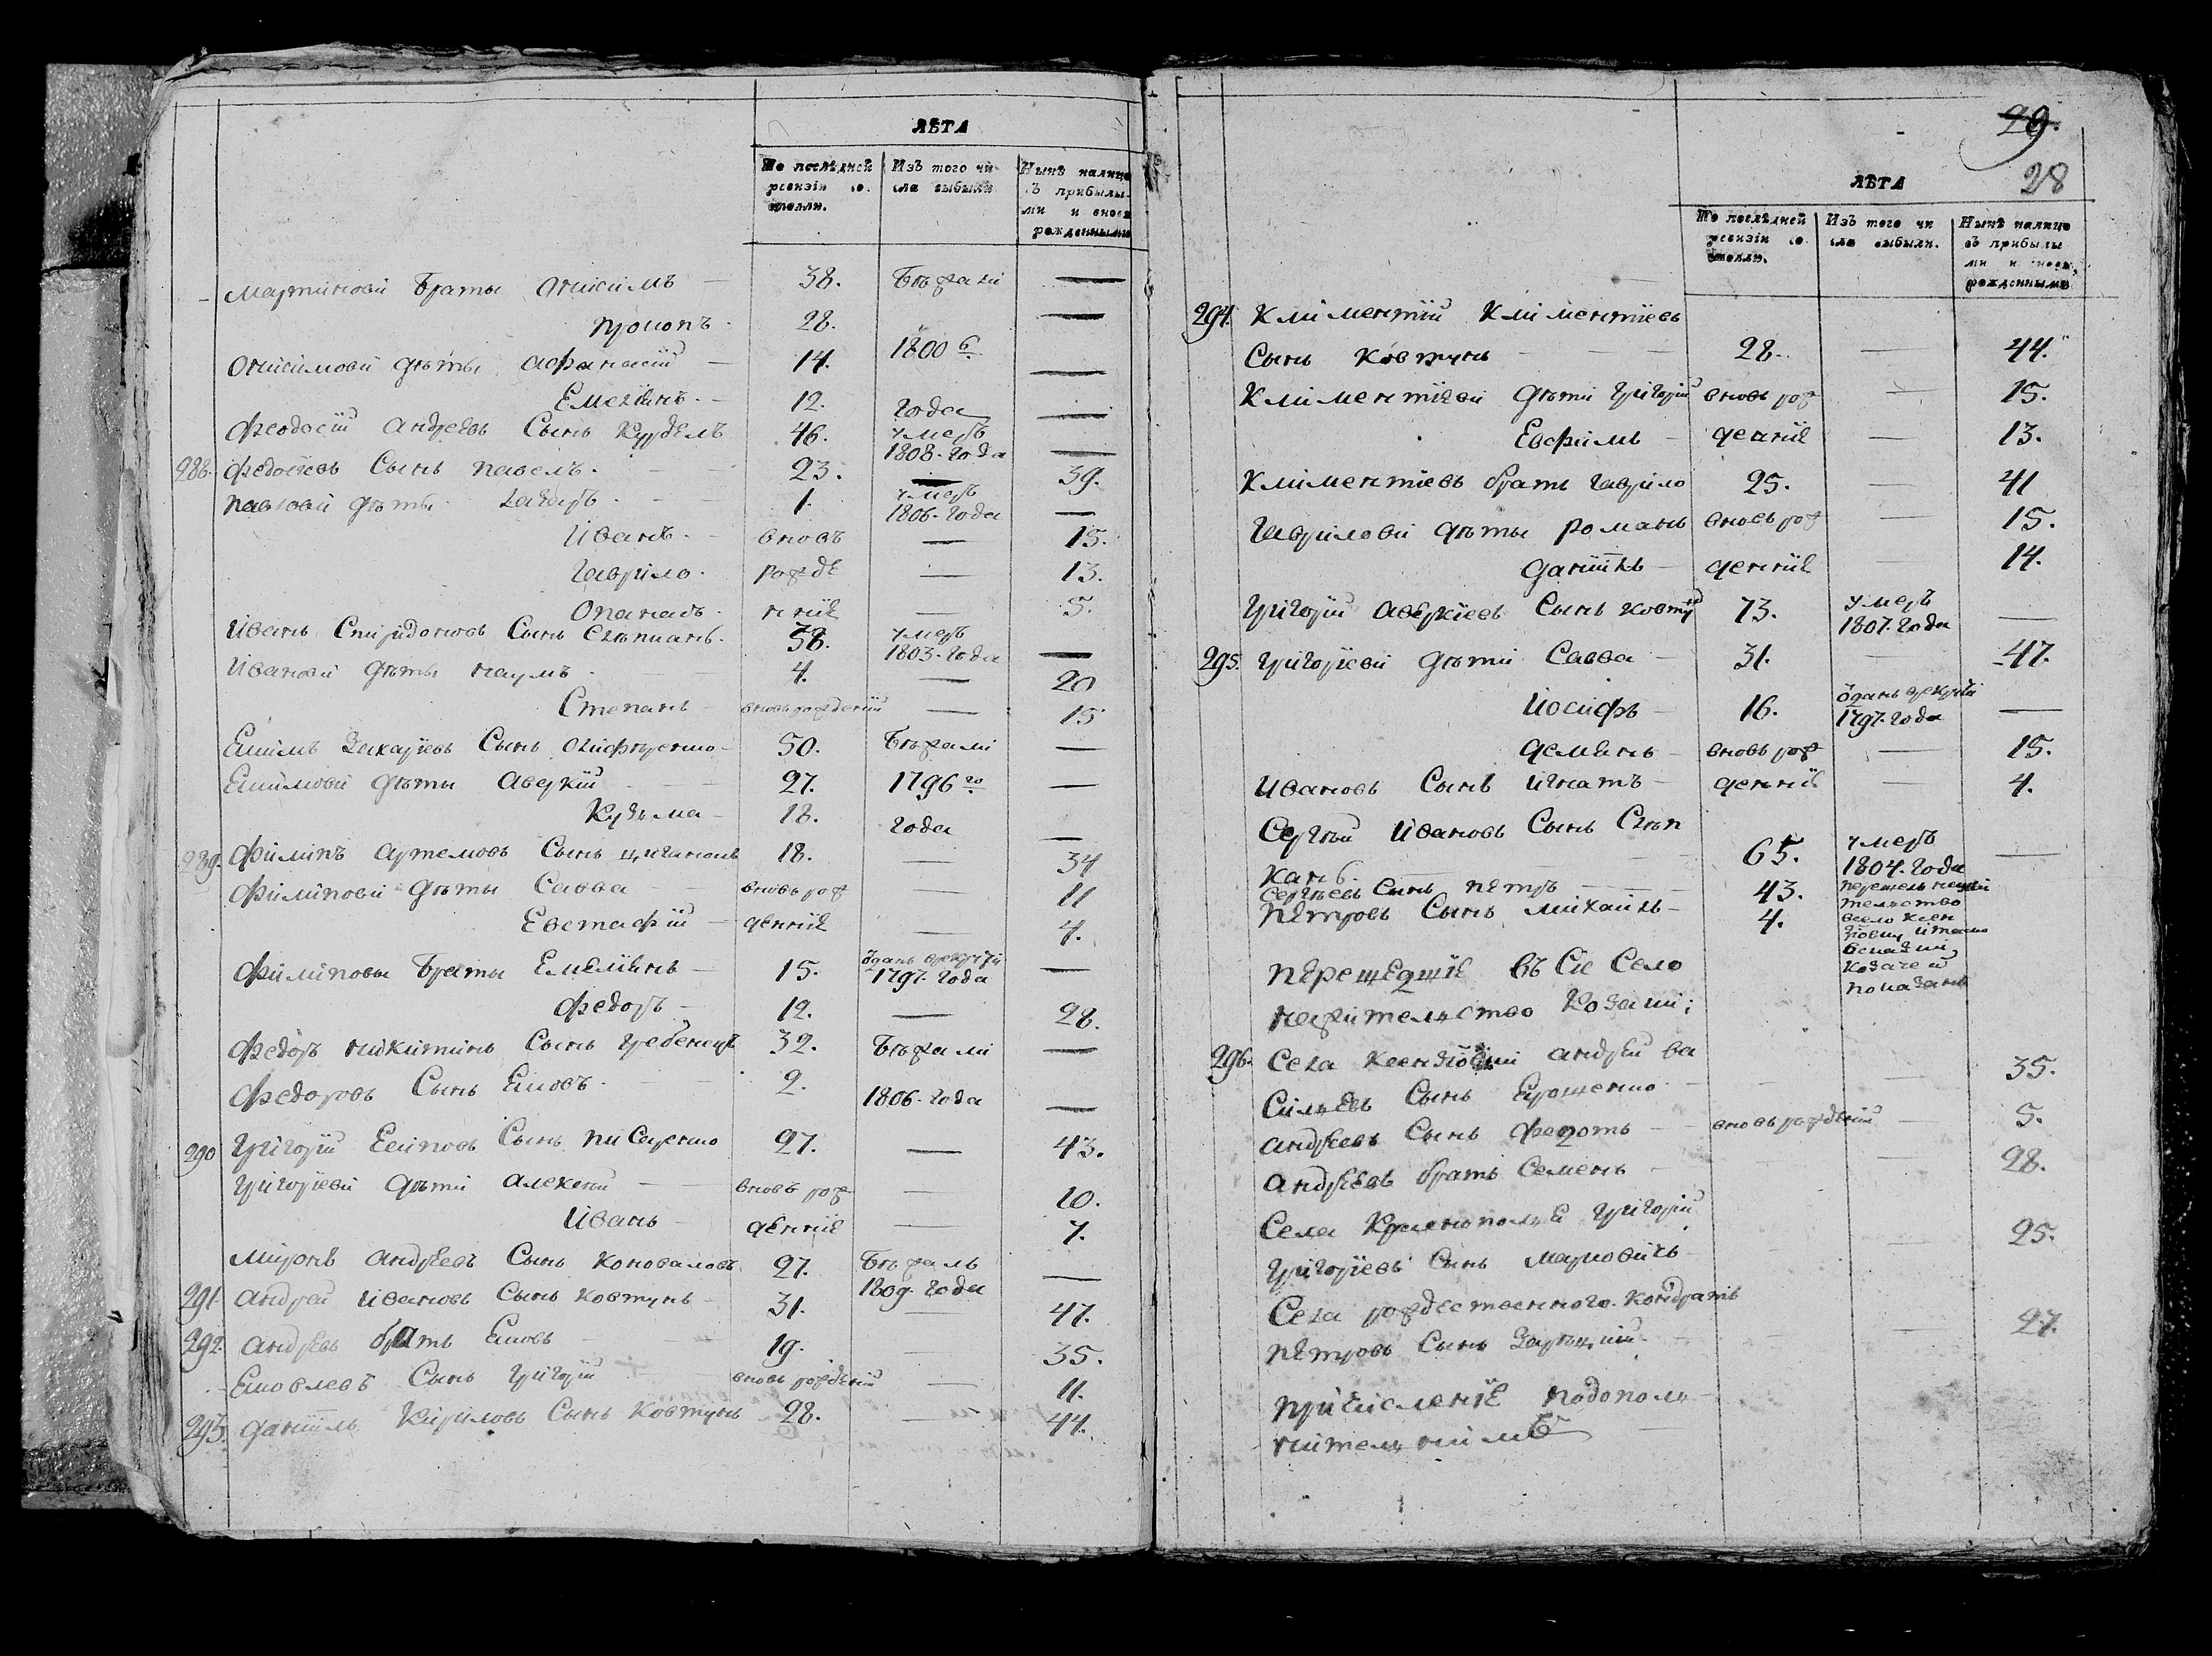 ЛѢТА
По послѣдней ревизіи со- стояли.
Изъ того чи сла выбыли
Нынѣ налицо съ прибылы- ми и вновь рожденными
Мартинови Браты Онисимъ — 38. Бѣжали —
Прокопъ. 28. —
Онисимови дѣты Афанасій — 14. 1800 г. —
Емелянъ. — 12. Года —
Феодосій Андреевъ Сынъ Курдель 46. умеръ 1808. Года —
288. Федосіевъ Сынъ Павелъ. — 23. — 39.
Павлови дѣты Захаръ. — 1. умеръ 1806. Года —
Иванъ. — вновъ — 15.
Гаврило. рожде — 13.
Опанасъ. нніе — 5.
Иванъ Спиридоновъ Сынъ 38. умеръ 1803. Года —
Иванови дѣты Наумъ. — 4. — 20
Степанъ — вновь рожденій — 15
Екимъ Захаріевъ Сынъ — 50. Бѣжали —
Екимови дѣты Аверкій — 27. 1796 го —
Кузьма — 18. Года —
289. Филипъ Артемовъ Сынъ Циганокъ 18. — 34
Филипови дѣты Савва — вновь рож — 11
Евстафій — денніе — 4.
Филиповы Браты Емеліянъ — 15. Oданъ врекруты 1797. Года —
Федоръ — 12. — 28.
Федоръ Никитинъ Сынъ Гребенецъ 32. Бѣжали —
Федоровъ Сынъ Яковъ. — 2. 1806. Года —
290 Григорій Есиповъ Сынъ Писаренко 27. — 43.
Григоріеви дѣти Алексей — вновь рож — 10.
Иванъ — денніе — 7.
Миронъ Андреевъ Сынъ Коноваловъ 27. Бѣжалъ 1809. Года —
291. Андрей Ивановъ Сынъ Ковтунъ — 31. — 47.
292. Андреевъ братъ Яковъ — 19. — 35.
Яковлевъ Сынъ Григорій — вновь рожденій — 11.
293. Даніилъ Кириловъ Сынъ Ковтунъ 28. — 44.
29.
28
ЛѢТА
По послѣдней ревизіи со- стояли.
Изъ того чи сла выбыли.
Нынѣ налицо съ прибылы ми и вновь рожденными
294. Климентій Климентіевъ
Сынъ Ковтунъ — 28. — 44.
Климентіеви дѣти Григорій вновь рож — 15.
Евфимъ — денніе — 13.
Климентіевъ братъ Гаврило 25. — 41
Гаврилови дѣты Романъ вновь рож — 15.
Даніилъ — денніе — 14.
Григорій Аверкіевъ Сынъ Ковтунъ 73. умеръ 1807. Года —
295. Григоріеви дѣти Савва — 31. — 47.
Іосифъ — 16. Oданъ врекруты 1797. Года —
Демянъ — вновь рож — 15.
Ивановъ Сынъ Игнатъ — деннія — 4.
Сергѣй Ивановъ Сынъ Слѣп
канъ. 65. умеръ 1804. Года —
Сергѣевъ Сынъ Петръ — 43. перешелъ нажи
Петровъ Сынъ Михаилъ — 4. телство
всело Ксен
зовку итамо
всказки
козачей
показанъ
Перешедшіе въ Сіе Село
нажительство Козаки;
296. Села Ксензовки Андрей Ва
силіевъ Сынъ Ярошенко — 35.
Андреевъ Сынъ Федотъ — вновь рожденій — 5.
Андреевъ братъ Семенъ — 28.
Села Краснополя Григорій
Григоріевъ Сынъ Марковичъ — 25.
Села рождественного. Кондратъ
Петровъ Сынъ Зарѣцкій — 27.
Причисленіе подопол
нителнимъ